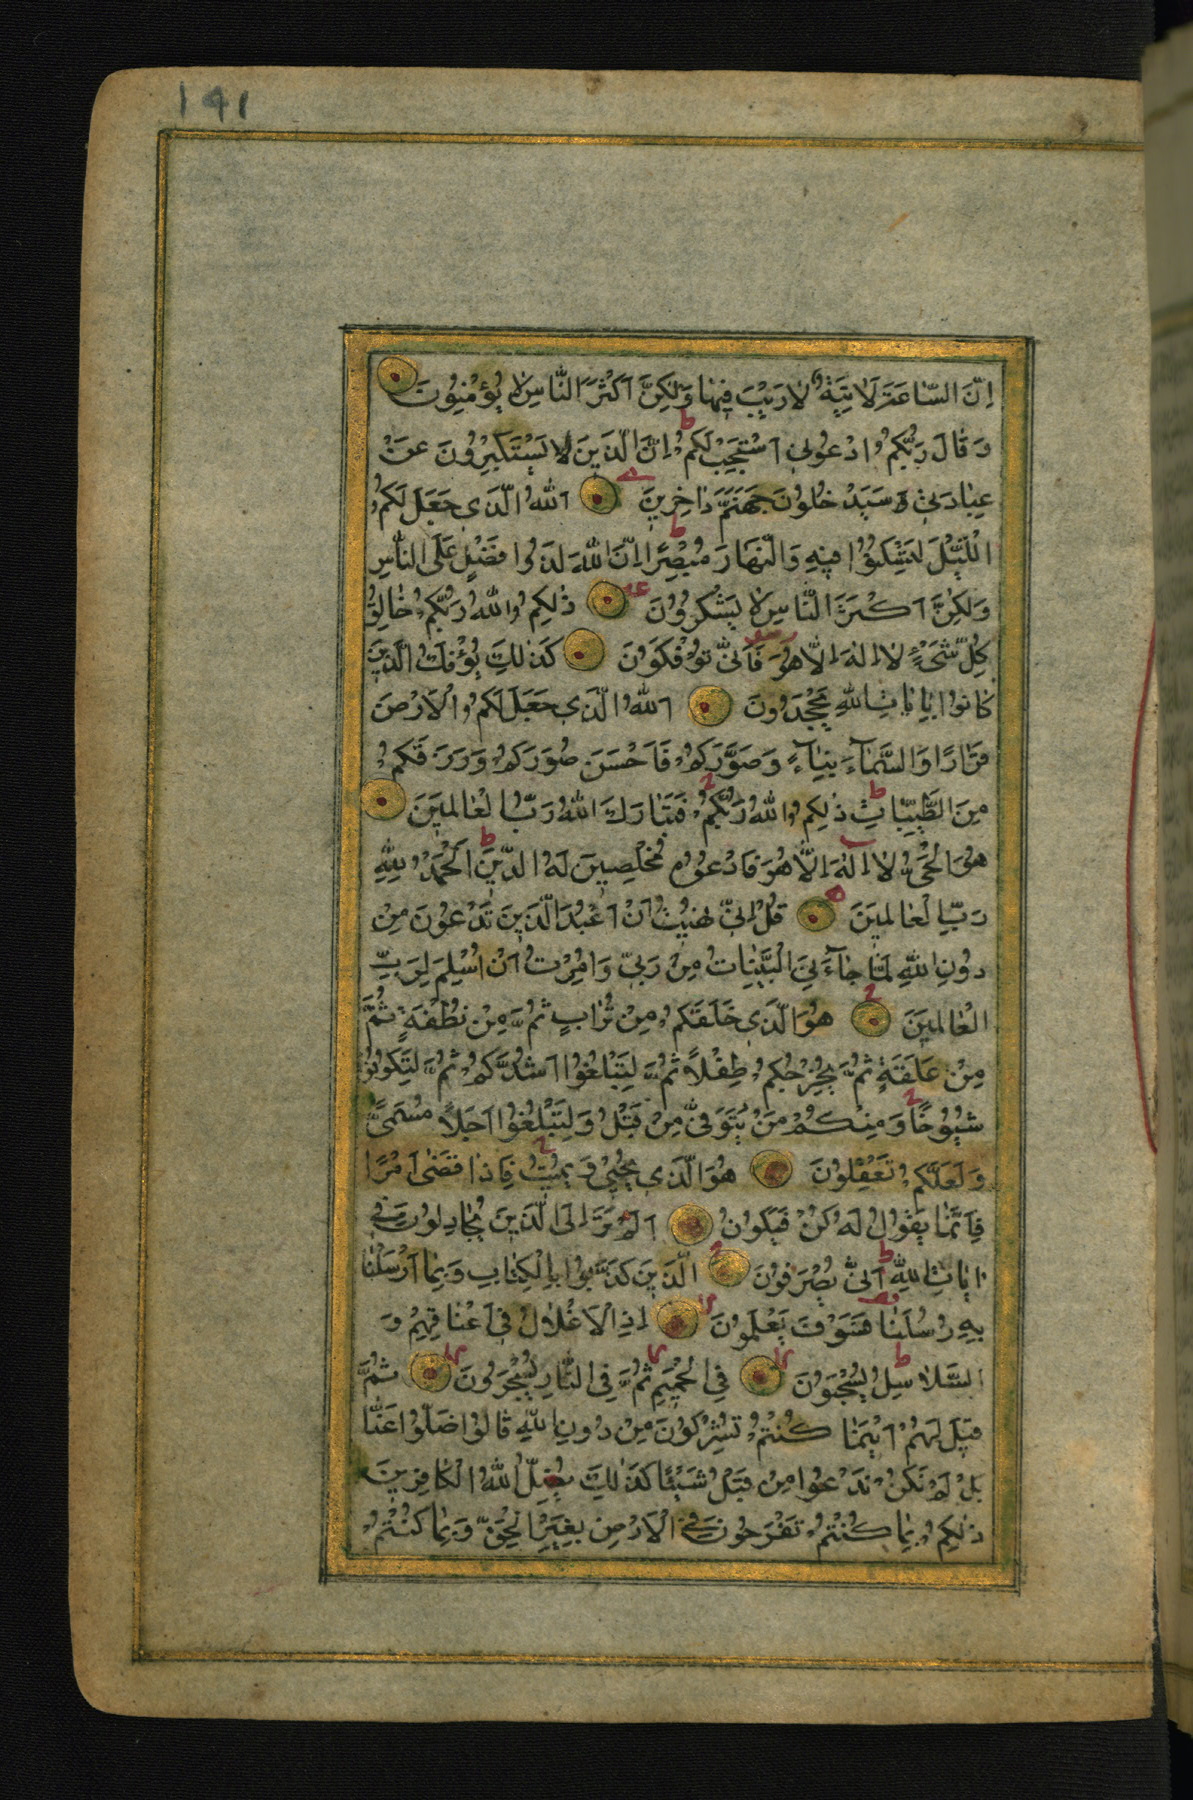 141
اِنَّ السّٰاعَةَ لَاٰتِيَةٌ لٰا رَيْبَ فِيهٰا وَلٰكِنَّ اَكْثَرَ النّٰاسِ لٰا يُؤْمِنُونَ
وَ قٰالَ رَبُّكُمُ ادْعُونِي اَسْتَجِبْ لَكُمْ اِنَّ الَّذِينَ يَسْتَكْبِرُونَ عَنْ
عِبٰادَتِي سَيَدْخُلُونَ جَهَنَّمَ دٰاخِرِينَ اَللّٰهُ الَّذِي جَعَلَ لَكُمُ
اللَّيْلَ لِتَسْكُنُوا فِيهِ وَالنَّهٰارَ مُبْصِرًا اِنَّ اللّٰهَ لَذُو فَضْلٍ عَلَى النّٰاسِ
وَلٰكِنَّ اَكْثَرَ النّٰاسِ لٰا يَشْكُرُونَ ذٰلِكُمُ اللّٰهُ رَبُّكُمْ خٰالِقُ
كُلِّ شَيْءٍ لٰا اِلٰهَ اِلّٰا هُوَ فَاَنّٰى تُؤْفَكُونَ كَذٰلِكَ يُؤْفَكُ الَّذِينَ
كٰانُوا بِاٰيٰاتِ اللّٰهِ يَجْحَدُونَ اَللّٰهُ الَّذِي جَعَلَ لَكُمُ الْاَرْضَ
قَرٰارًا وَالسَّمٰآءَ بِنٰآءً وَ صَوَّرَكُمْ فَاَحْسَنَ صُوَرَكُمْ وَرَزَقَكُمْ
مِنَ الطَّيِّبٰاتِ ذٰلِكُمُ اللّٰهُ رَبُّكُمْ فَتَبٰارَكَ اللّٰهُ رَبُّ الْعٰالَمِينَ
هُوَ الْحَيُّ لٰا اِلٰهَ اِلّٰا هُوَ فَادْعُوهُ مُخْلِصِينَ لَهُ الدِّينَ اَلْحَمْدُ لِلّٰهِ
رَبِّ الْعٰالَمِينَ قُلْ اِنِّي نُهِيتُ اَنْ اَعْبُدَ الَّذِينَ تَدْعُونَ مِنْ
دُونِ اللّٰهِ لَمّٰا جٰآءَنِيَ الْبَيِّنٰاتُ مِنْ رَبِّي وَ اُمِرْتُ اَنْ اُسْلِمَ لِرَبِّ
الْعٰالَمِينَ هُوَ الَّذِي خَلَقَكُمْ مِنْ تُرٰابٍ ثُمَّ مِنْ نُطْفَةٍ ثُمَّ
مِنْ عَلَقَةٍ ثُمَّ يُخْرِجُكُمْ طِفْلًا ثُمَّ لِتَبْلُغُوا اَشُدَّكُمْ ثُمَّ لِتَكُونُوا
شُيُوخًا وَ مِنْكُمْ مَنْ يُتَوَفّٰى مِنْ قَبْلُ وَ لِتَبْلُغُوا اَجَلًا مُسَمًّى
وَ لَعَلَّكُمْ تَعْقِلُونَ هُوَ الَّذِي يُحْيِي وَ يُمِيتُ فَاِذٰا قَضٰى اَمْرًا
فَاِنَّمٰا يَقُولُ لَهُ كُنْ فَيَكُونُ اَلَمْ تَرَ اِلَى الَّذِينَ يُجٰادِلُونَ فِي
اٰيٰاتِ اللّٰهِ اَنّٰى يُصْرَفُونَ الَّذِينَ كَذَّبُوا بِالْكِتٰابِ وَ بِمٰا اَرْسَلْنٰا
بِهِ رُسُلَنٰا فَسَوْفَ يَعْلَمُونَ اِذِ الْاَغْلٰالُ فِي اَعْنٰاقِهِمْ وَ
السَّلٰاسِلُ يُسْحَبُونَ فِي الْحَمِيمِ ثُمَّ فِي النّٰارِ يُسْجَرُونَ ثُمَّ
قِيلَ لَهُمْ اَيْنَمٰا كُنْتُمْ تُشْرِكُونَ مِنْ دُونِ اللّٰهِ قٰالُوا ضَلُّوا عَنّٰا
بَلْ لَمْ نَكُنْ نَدْعُوا مِنْ قَبْلُ شَيْئًا كَذٰلِكَ يُضِلُّ اللّٰهُ الْكٰافِرِينَ
ذٰلِكُمْ بِمٰا كُنْتُمْ تَفْرَحُونَ فِي الْاَرْضِ بِغَيْرِ الْحَقِّ وَ بِمٰا كُنْتُمْ